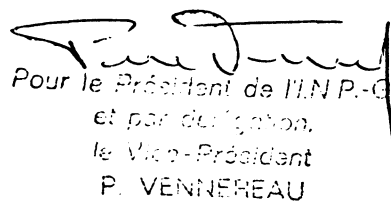 Pour le Président de l'I.N.P.-G
et par délégation,
le Vice-Président
P. VENNEREAU